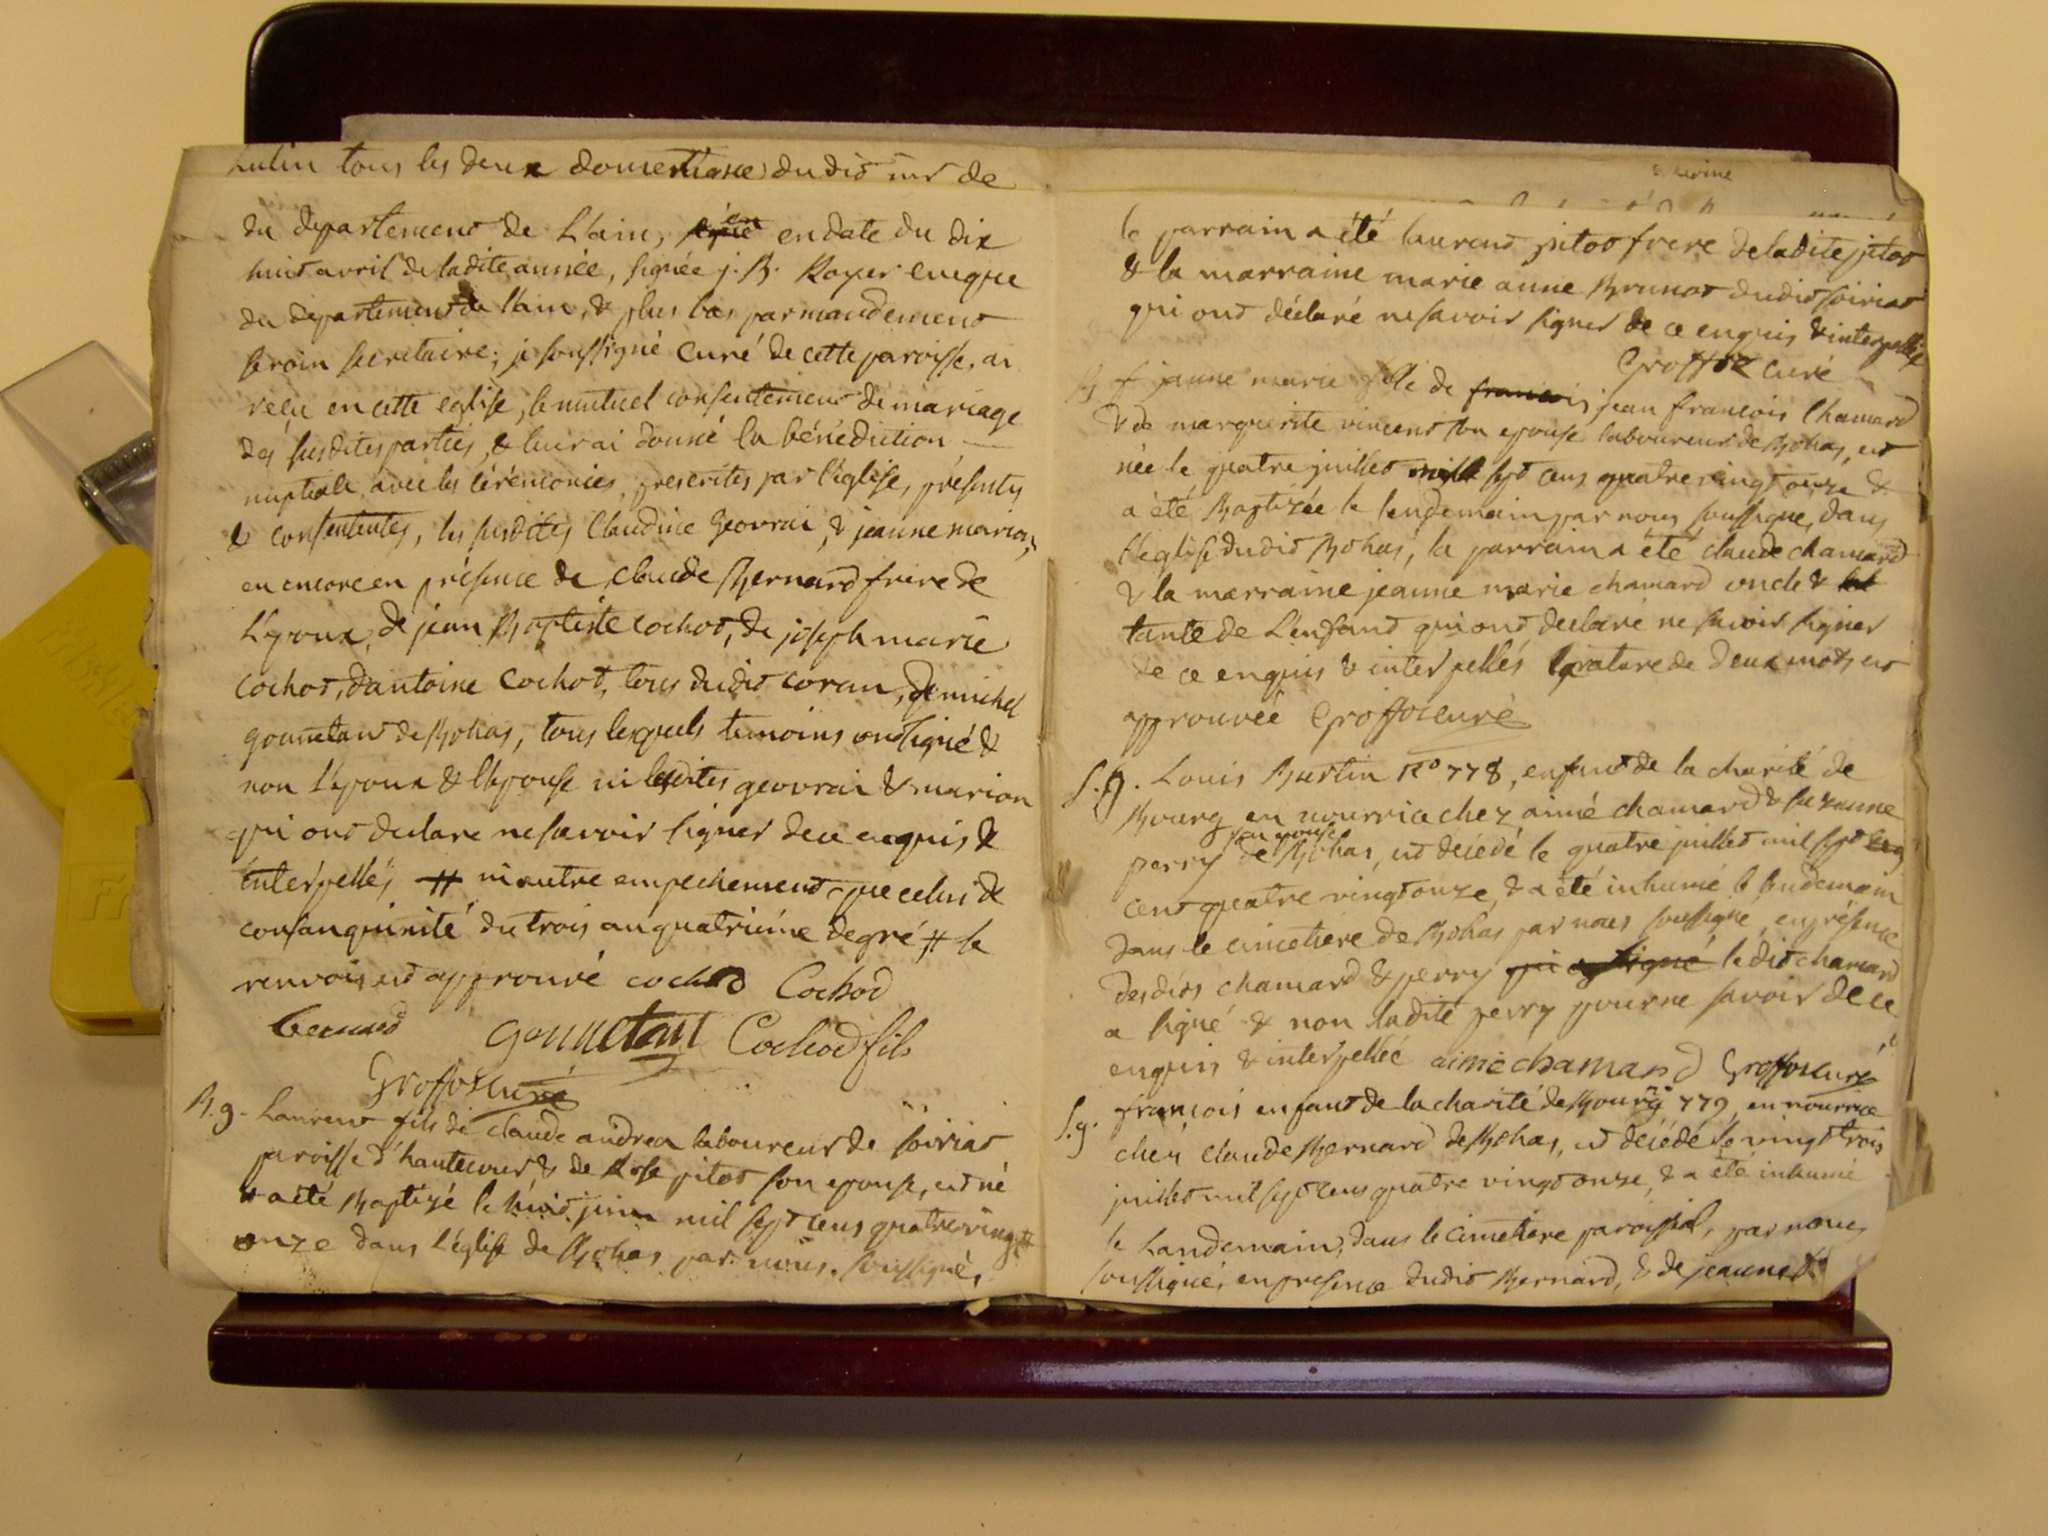 tous les deux domestique dudit sur de
du departement de L'ain, signé en en date du dix
huit avril de ladite année, signée j. B. Royer eveque
du departement de l'ain, & plus bas par mandement
secretaire; je soussigné Curé de cette paroisse, ai
reçu en cette eglise, le mutuel consentement de mariage
des susdites parties, & leur ai donné la bénédiction
nuptiale avec les cérémonies prescrites par l'église, présentes
& consententes, les susdites Claudine Geovrai, & jeanne marion,
en encore en présence de claude Bernard frere de
L'epoux, de jean Baptiste cochot, de joseph marie
cochot, d'antoine Cochot, tous dudit coran, de michel
gounetant de Bohas, tous lesquels temoins ont signé &
non L'epoux & l'epouse ni lesdites geovrai & marion
qui ont declare ne savoir signer de ce enquis &
interpellés # ni autre empechement que celui de
consanquinité du trois au quatriéme degré # le
renvois est approuvé cochod Cochod
bernard gounetant Cochod fils
Groffoz curé
B. g. Laurent fils de claude andrea laboureur de soiriat
paroisse d'hautecour & de Rose pitot son epouse, est né
& a été Baptizé le huit juin mil sept cens quatrevingt
onze dans l'église de Bohas par nous soussigné,
le parrain a été laurent pitot frere de ladite pitot
& la marraine marie anne Brunot dudit soiriat
qui ont déclaré ne savoir signer de ce enquis & interpellés
Groffoz curé
B f jeanne marie fille de francois jean francois Chamard
& de marguerite vincent son epouse laboureur de Bohas, est
née le quatre juillet mille sept cens quatre vingt onze &
a été Baptizée le lendemain par nous soussigné, dans
l'eglise dudit Bohas, le parrain a été claude chamard
& la marraine jeanne marie chamard oncle &
tante de L'enfant qui ont declaré ne savoir signer
de ce enquis & interpellés la rature de deux mots est
approuvée Groffoz curé
S. g. Louis Burtin No 778, enfant de la charité de
Bourg en nourrice chez aimé chamard & suzanne
perry son epouse de Bohas, est décédé le quatre juillet mil sept
cent quatre vingt onze, & a été inhumé le lendemain
dans le cimetiére de Bohas par nous soussigné en présence
desdits chamard & perry qui a signé ledit chamard
a signé & non ladite perry pour ne savoir de ce
enquis & interpellée aimé chamard Groffoz curé
S. g. françois enfant de la charité de Bourg no 779 en nourrice
chez claude Bernard de Bohas, est décédé le vingt trois
juillet mil sept cens quatre vingt onze, & a été inhumé
le Landemain, dans le cimetiére paroissial, par nous
soussigné, en presence dudit Bernard, & de jeanne